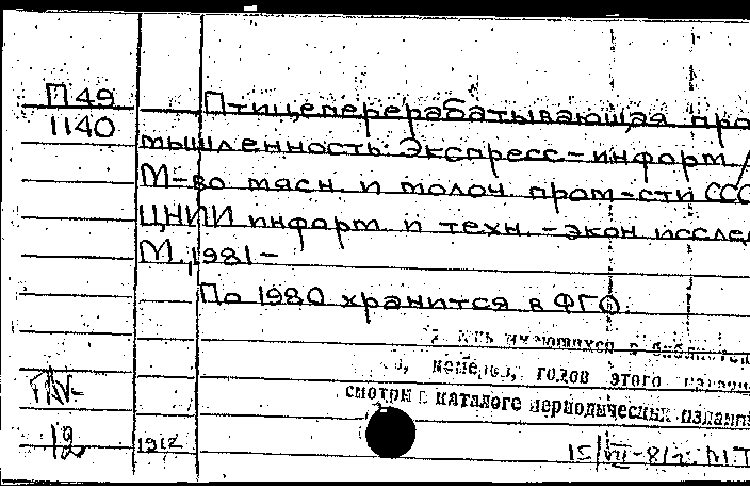 П 49
1140
Птицеперерабатывающая про
мышленность: Экспресс-информ. /
М-во мясн. и молоч. пром-сти ССС
ЦНИИ информ. и техн.-экон. исслед
М., 1981 -
По 1980 хранится в ФГО.
имеющихся в библиотек
номеров, годов этого названи
смотри в каталоге периодических издани
12
15/VII-81г. М.Т